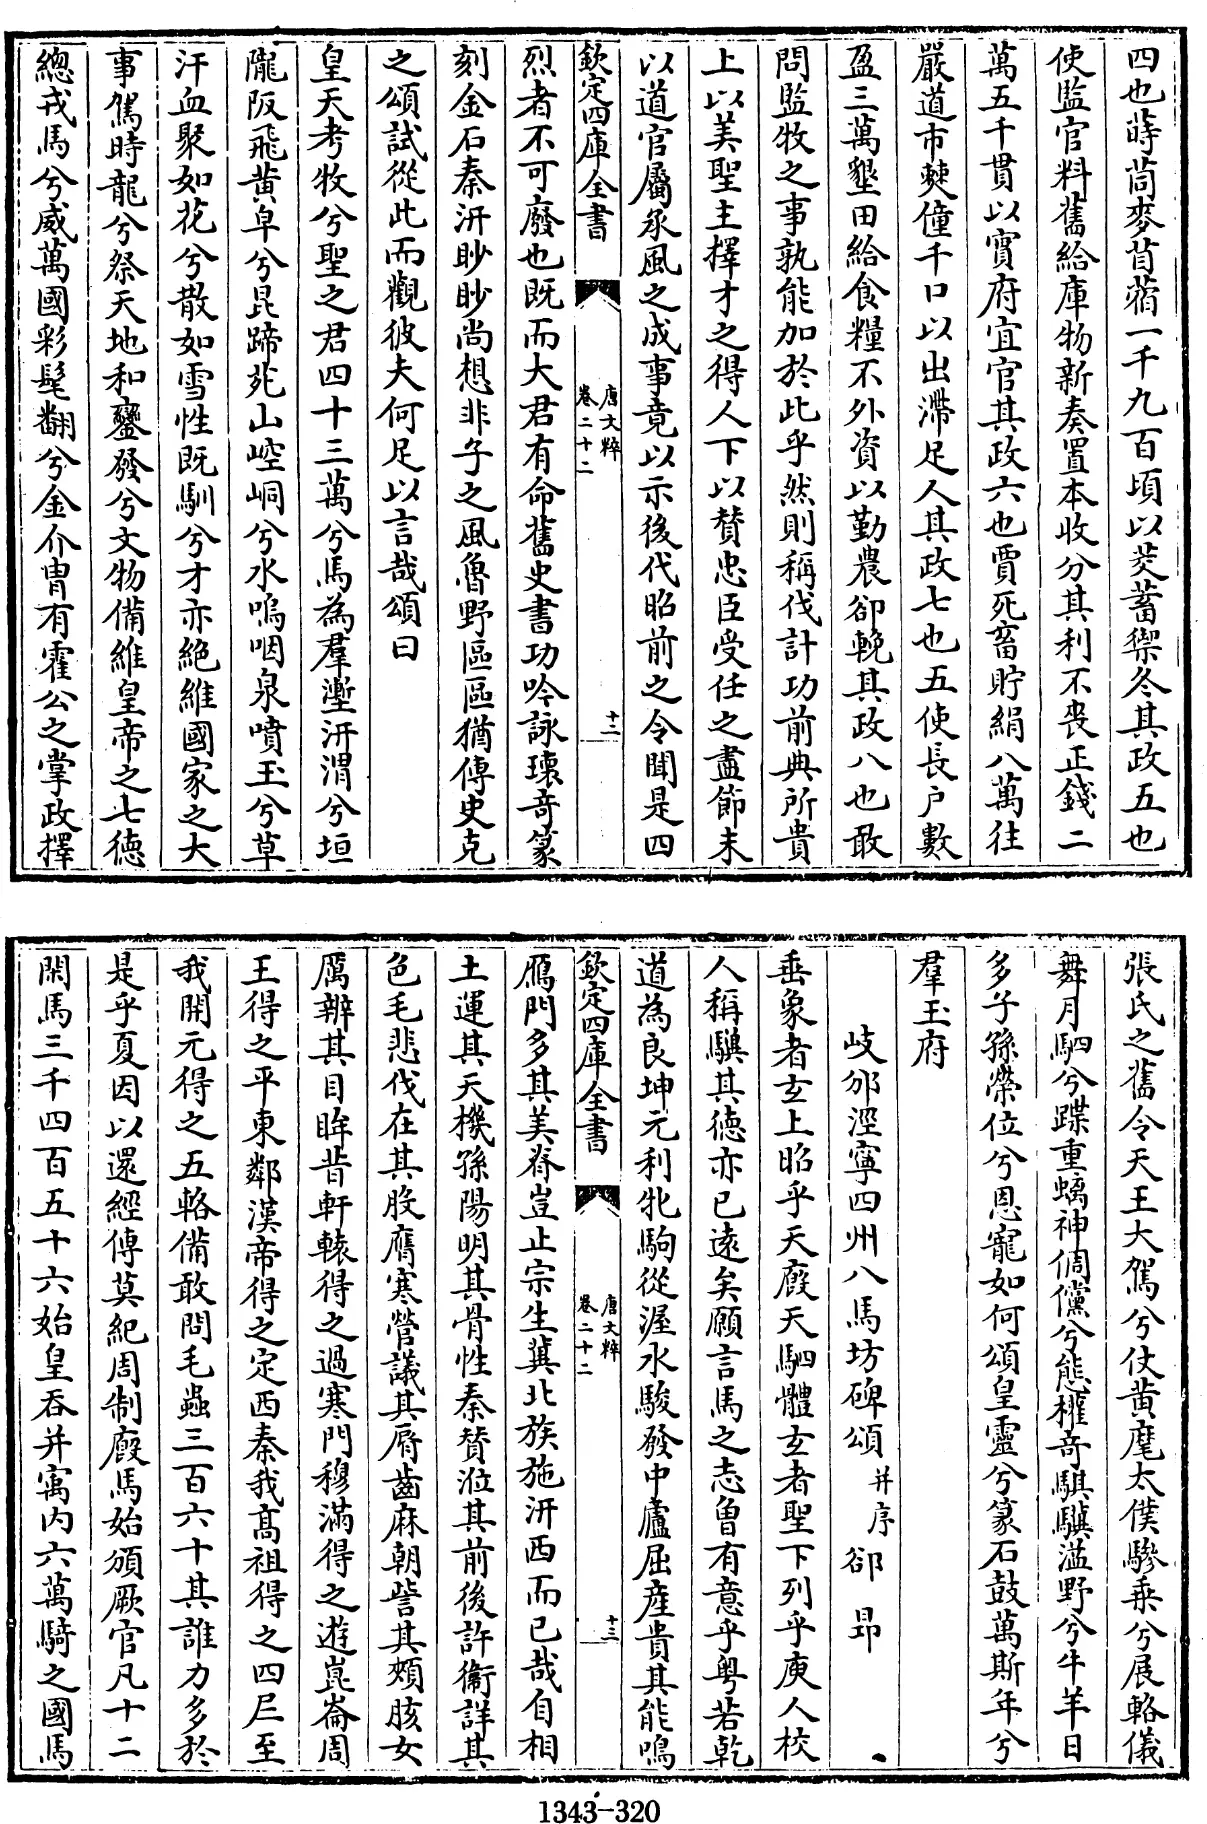 四也蒔茼麥苜蓿一千九百頃以茭蓄禦冬其政五也
使監官料舊給庫物新奏置本收分其利不喪正錢二
萬五千貫以實府宜官其政六也賈死畜貯絹八萬往
嚴道市僰僮千口以出滯足人其政七也五使長户數
盈三萬墾田給食糧不外資以勤農卹輓其政八也敢
問監牧之事孰能加於此乎然則稱伐計功前典所貴
上以美聖主擇才之得人下以賛忠臣受任之盡節末
以道官屬承風之成事竟以示後代昭前之令聞是四
欽定四庫全書
唐文粹
卷二十二
十二
烈者不可廢也既而大君有命舊史書功吟詠瓌奇篆
刻金石秦汧眇眇尚想非子之風魯野區區猶傳史克
之頌試從此而觀彼夫何足以言哉頌曰
皇天考牧兮聖之君四十三萬兮馬為羣壍汧渭兮垣
隴阪飛黄皁兮昆蹄苑山崆峒兮水嗚咽泉噴玉兮草
汗血聚如花兮散如雪性既馴兮才亦絶維國家之大
事駕時龍兮祭天地和鑾發兮文物備維皇帝之七德
總戎馬兮威萬國彩髦翻兮金介胄有霍公之掌政擇
張氏之舊令天王大駕兮仗黄麾太僕驂乘兮展輅儀
舞月駟兮蹀重螭神倜儻兮態權奇騏驥溢野兮牛羊日
多子孫榮位兮恩寵如何頌皇靈兮篆石鼓萬斯年兮
羣玉府
岐邠涇寧四州八馬坊碑頌 并序 郤昂
垂象者玄上昭乎天廐天駟體玄者聖下列乎庾人校
人稱驥其德亦已遠矣願言馬之志曾有意乎粤若乾
道為良坤元利牝駒從渥水駿發中廬屈産貴其能鳴
欽定四庫全書
唐文粹
卷二十二
十三
鴈門多其美脊豈止宗生冀北族施汧西而已哉自相
土運其天機孫陽明其骨性秦賛涖其前後許衞詳其
色毛悲伐在其股膺寒管議其脣齒麻朝訾其頰胲女
厲辨其目眸昔軒轅得之過寒門穆滿得之遊崑崙周
王得之平東鄰漢帝得之定西秦我髙祖得之四凥至
我開元得之五輅備敢問毛蟲三百六十其誰力多於
是乎夏因以還經傳莫紀周制廐馬始頒厥官凡十二
閑馬三千四百五十六始皇吞并寓内六萬騎之國馬
1343-320